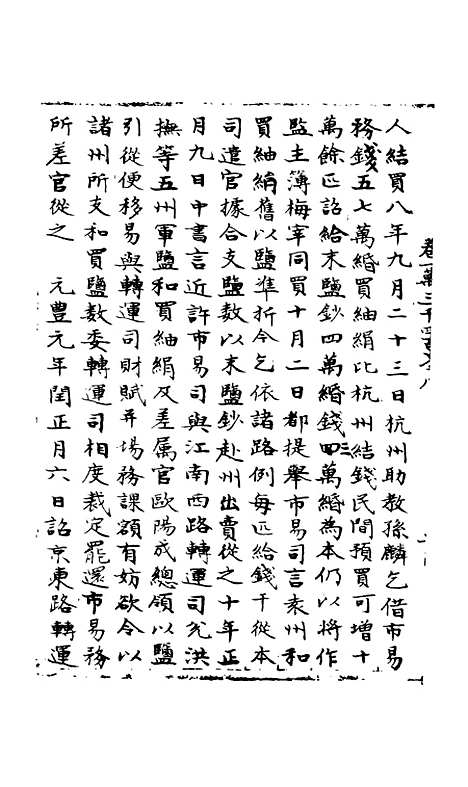 人結買八年九月二十三日杭州助教孫麟乞借市易
務錢五七萬緡買紬絹比杭州結錢民間預買可增十
萬餘匹詔給末鹽鈔四萬緡錢四萬緡為本仍以將作
監主簿梅宰同買十月二日都提舉市易司言袁州和
買紬絹舊以鹽準折今乞依諸路例每匹給錢千從本
司遣官據合支鹽數以末鹽鈔赴州出賣從之十年正
月九日中書言近許市易司與江南西路轉運司兌洪
撫等五州軍鹽和買紬絹及差屬官歐陽成總領以鹽
引從便移易與轉運司財賦并場務課額有妨欲令以
諸州所支和買鹽數委轉運司相度裁定罷還市易務
所差官從之　元豊元年閏正月六日詔京東路轉運